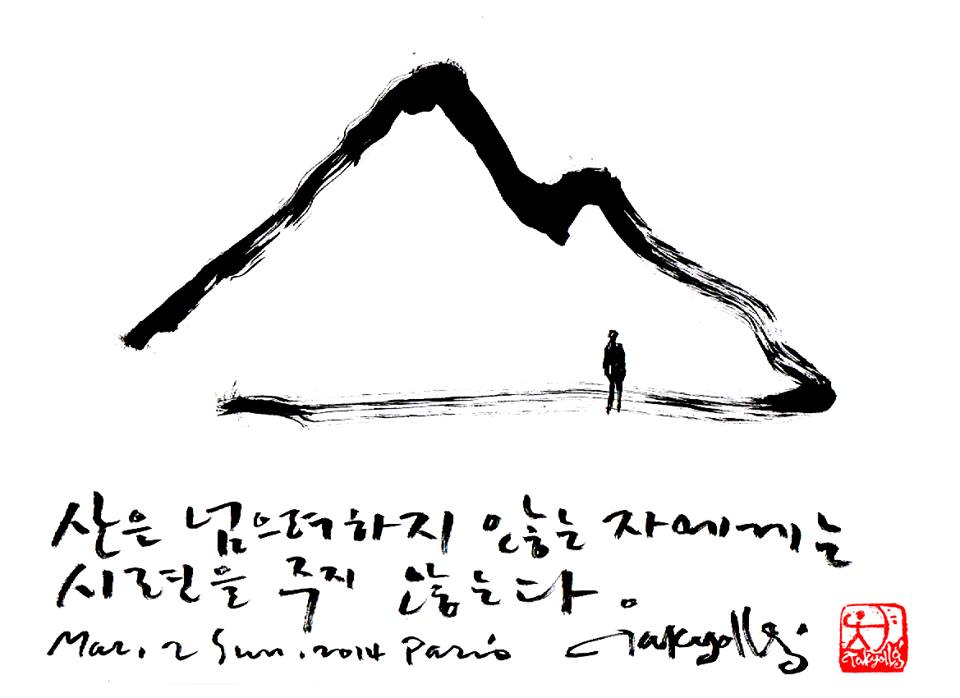 산은 넘으려하지 않는 자에게는
시련을 주지 않는다.
Mar. 2 Sun. 2014 Paris